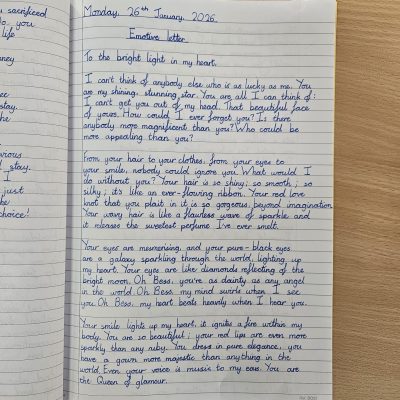 sacrificed
you
life
stay.
I
just
choice!
Monday, 26th January, 2026.
Emotive letter
To the bright light in my heart,
I can't think of anybody else who is as lucky as me. You
are my shining, stunning star. You are all I can think of;
I can't get you out of my head. That beautiful face
of yours. How could I ever forget you? Is there
anybody more magnificent than you? Who could be
more appealing than you?
From your hair to your clothes, from your eyes to
your smile, nobody could ignore you. What would I
do without you? Your hair is so shiny; so smooth; so
silky; it's like an ever-flowing ribbon. Your red love
knot that you plait in it is so gorgeous, beyond imagination.
Your wavy hair is like a flawless wave of sparkle and
it releases the sweetest perfume I've ever smelt.
Your eyes are mesmerising, and your pure-black eyes
are a galaxy sparkling through the world, lighting up
my heart. Your eyes are like diamonds reflecting of the
bright moon. Oh Bess, you're as dainty as any angel
in the world. Oh Bess, my mind swirls when I see
you. Oh Bess, my heart beats heavily when I hear you.
Your smile lights up my heart, it ignites a fire within my
body. You are so beautiful; your red lips are even more
sparkly than any ruby. You dress in pure elegance, you
have a gown more majestic than anything in the
world. Even your voice is music to my ears. You are
the Queen of glamour.